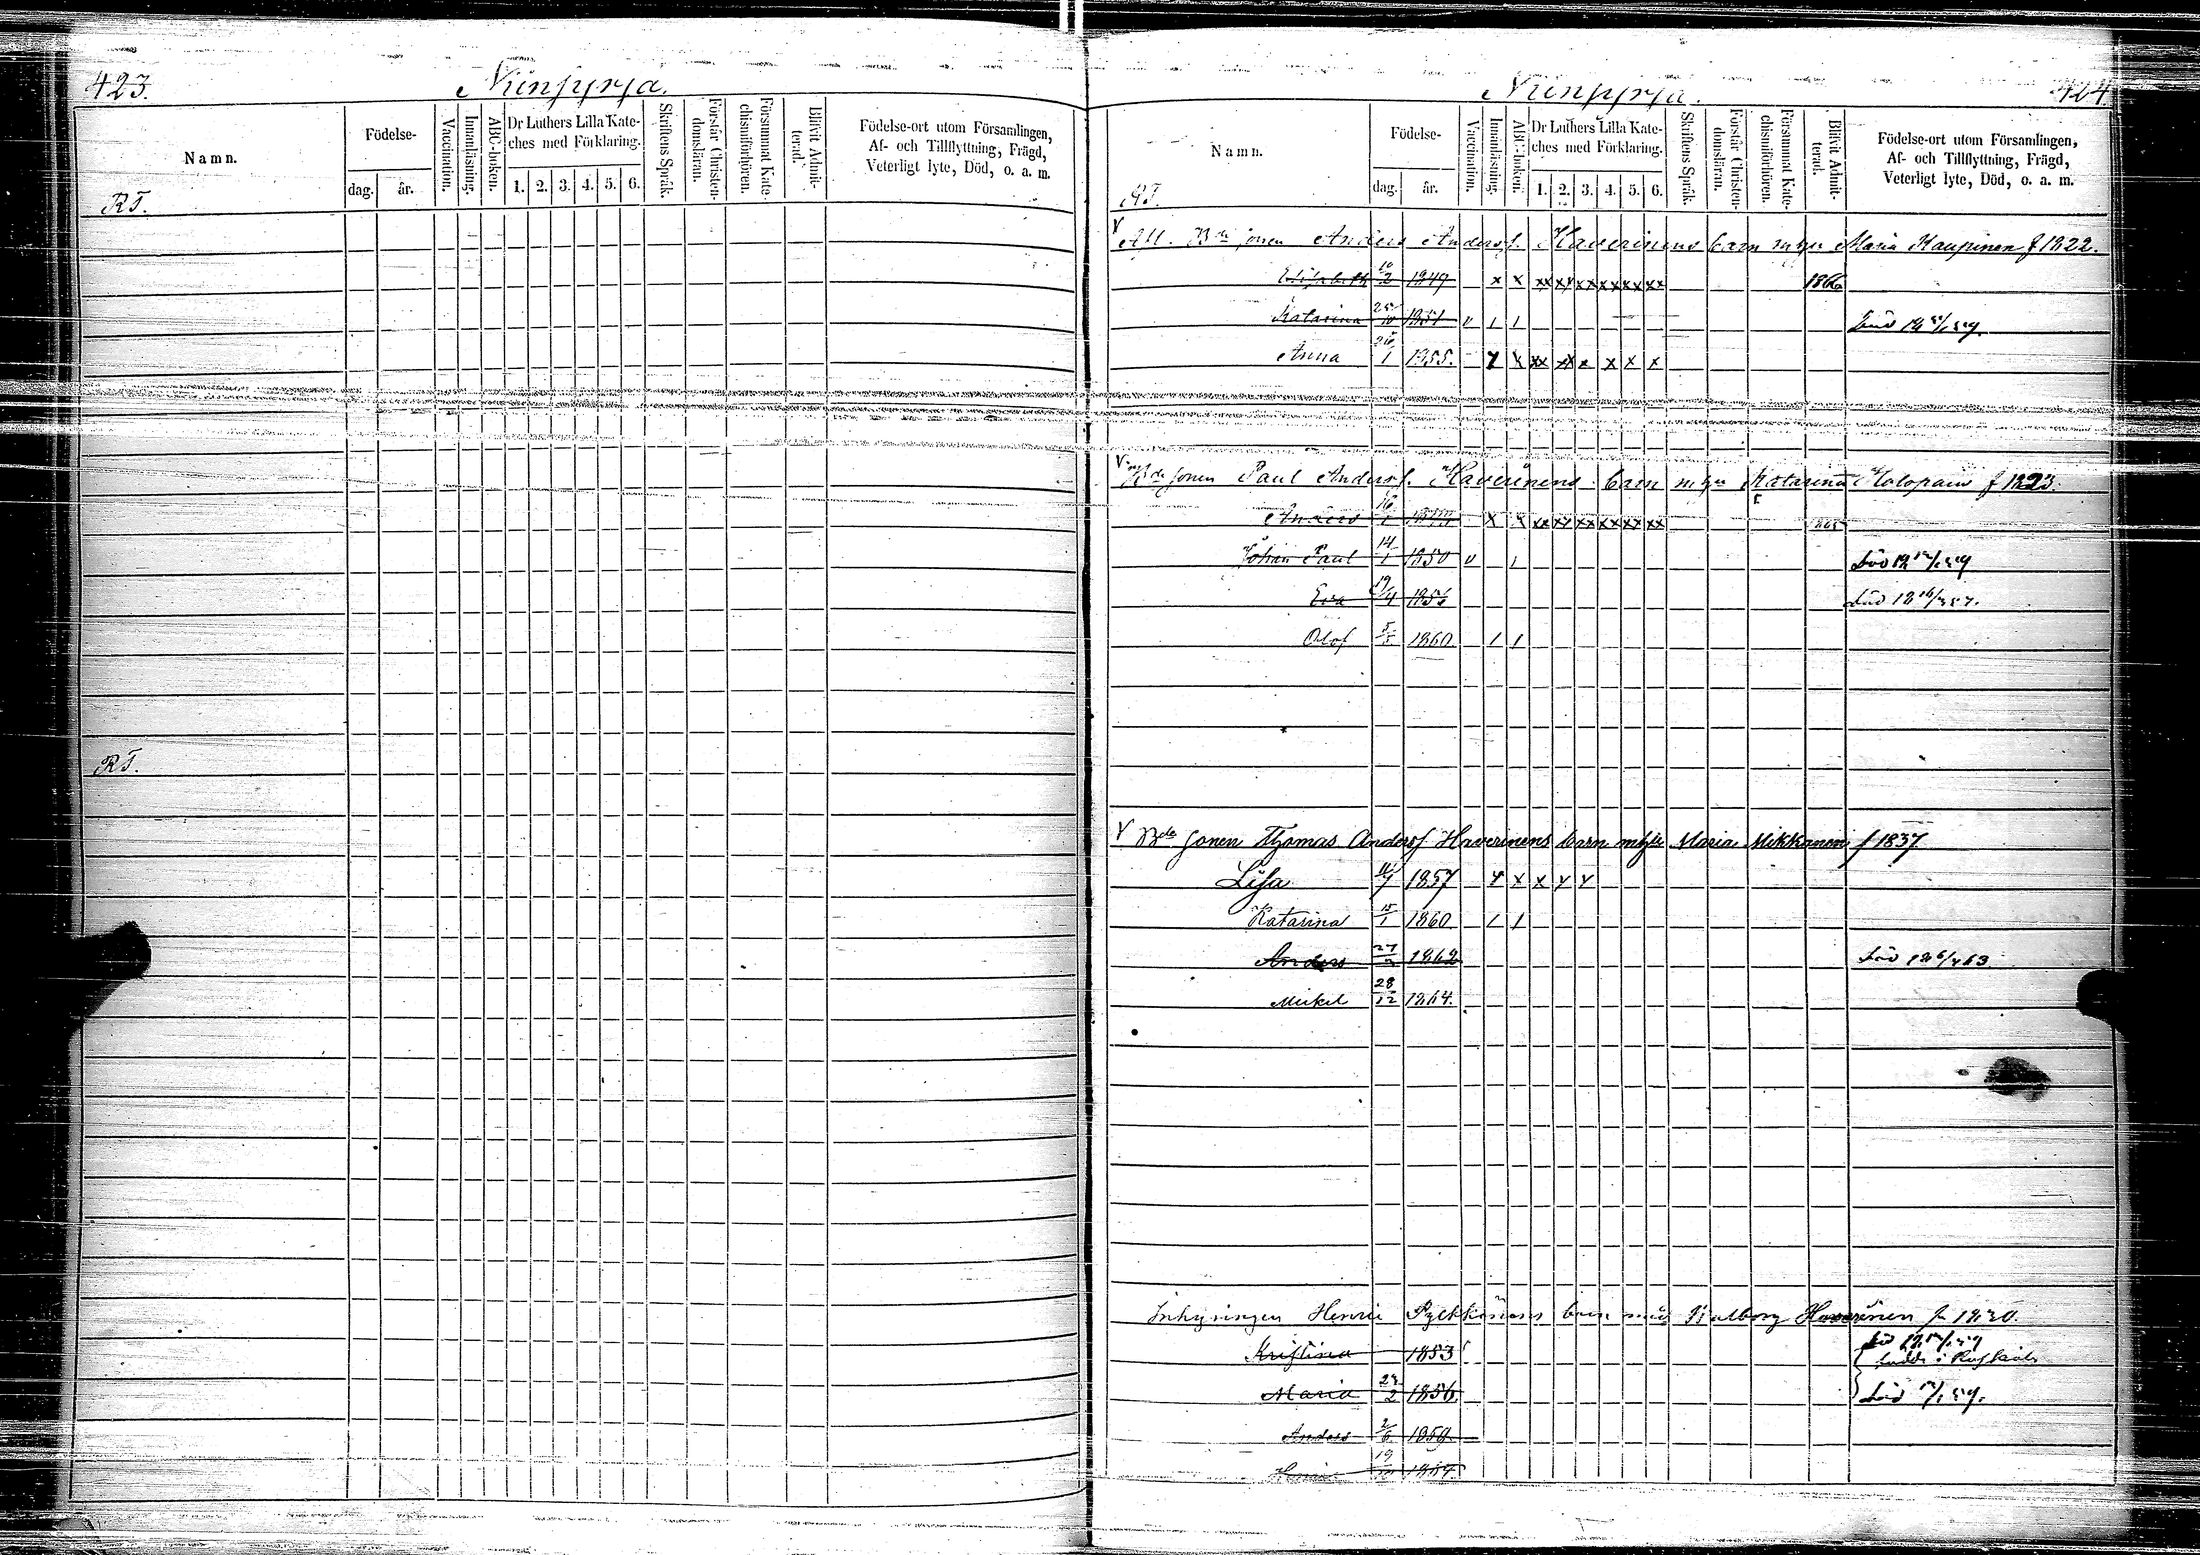 423.
Niinpyrja.
Namn.
Födelse-
dag. år.
Vaccination.
Innanläsning.
ABC-boken.
Dr Luthers Lilla Kate-
ches med Förklaring.
1. 2. 3. 4. 5. 6.
Skriftens Språk.
Förstår Christen-
domsläran.
Försummat Kate-
chismiförhören.
Blifvit Admit-
terad.
Födelse-ort utom Församlingen,
Af- och Tillflyttning, Frägd,
Veterligt lyte, Död, o. a. m.
RT.
RT.
424
Niinpyrja.
Namn.
Födelse-
dag. år.
Vaccination.
Innanläsning.
ABC-boken.
Dr Luthers Lilla Kate-
ches med Förklaring.
1. 2. 3. 4. 5. 6.
Skriftens Språk.
Förstår Christen-
domsläran.
Försummat Kate-
chismiförhören.
Blifvit Admit-
terad.
Födelse-ort utom Församlingen,
Af- och Tillflyttning, Frägd,
Veterligt lyte, Död, o. a. m.
RT.
Bde sonen Anders Andersf. Haverinens barn Maria Kaupinen f 1822.
Elisabeth 10/2 1849 x x xx xx xx xx xx xx 1866
Katarina 25/10 1851 v / /
Anna 26/1 1855. x x xx xx x x x x
Bde sonen Paul Andersf. Haverinens barn Katarina Holopain f 1823.
Anders 16/1 x x xx xx xx xx xx xx
Johan Paul 14/1 1850 v /
Eva 19/4 1856
Olof 5/5 1860 / /
V Bde sonen Thomas Andersf Haverinens barn mhu Maria Mikkanen f 1837
Lisa 1857 x x x x x
Katarina 15/1 1860 / /
Anders 1862 död 18 6/4 63
Mickel 28/12 1864.
Inhysingen Henric Pylkkänens barn med Walborg Haverinen f 1830.
Kristina 1853
Maria 1856
Anders 2/6 1859
19 1864